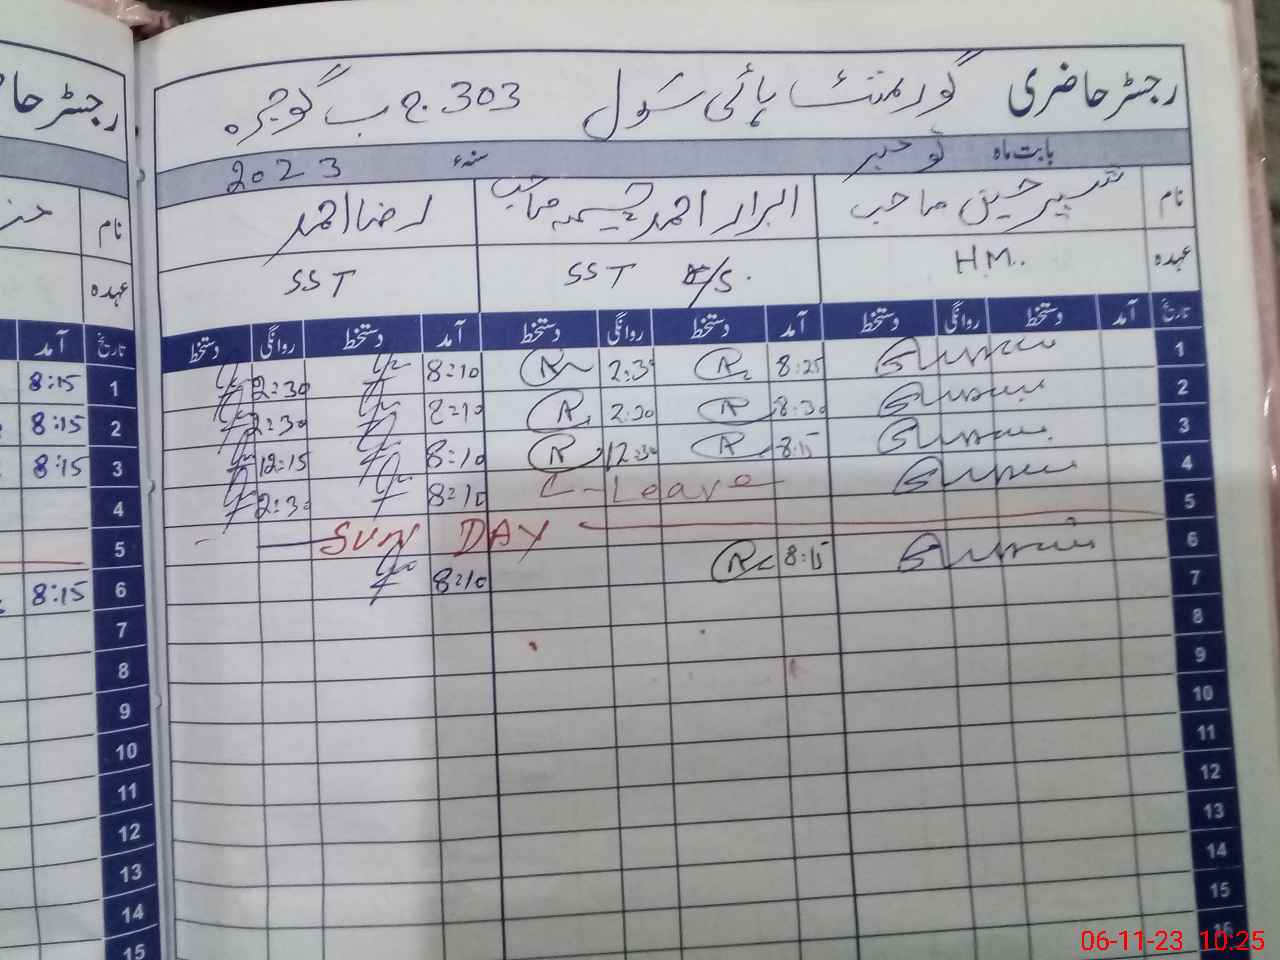 رجسٹر حاضری گورنمنٹ ہائی سکول 303 ج ب گوجرہ
بابت ماہ نومبر سنہء 2023
نام حسین صاحب ابرار احمد چیمہ صاحب رضا احمد
عہدہ H.M. SST SST
تاریخ آمد دستخط روانگی دستخط آمد دستخط روانگی دستخط آمد دستخط روانگی دستخط
1 8:25 2:3 8=10 2:30
2 8:30 2:30 8=10 2:30
3 8:15 12:30 8=10 12:15
4 C-Leave 8=10 2:30
5 SUN DAY
6 8:15 8=10
7
8
9
10
11
12
13
14
15
16
رجسٹر حا
نام
عہدہ
تاریخ آمد
1 8:15
2 8:15
3 8:15
4
5
6 8:15
7
8
9
10
11
12
13
14
15
06-11-23 10:25